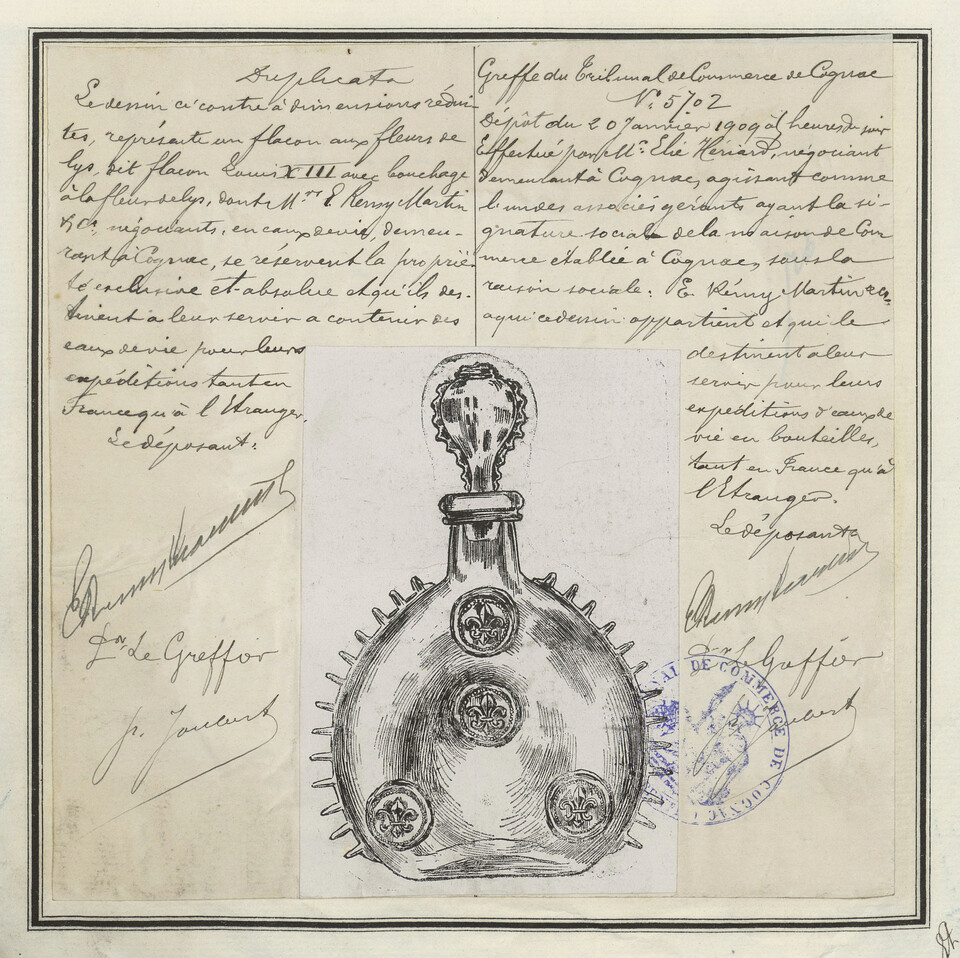 Duplicata
Le dessin ci contre à dimensions rédui-
tes, représente un flacon aux fleurs de
lys, dit flacon Louis XIII avec bouchage
à la fleur de lys, dont Mrs E. Remy Martin
& Co, négociants, en eaux de vie, demeu-
rant à Cognac, se réservent la proprié-
té exclusive et absolue et qu'ils des-
tinent à leur servir a contenir des
eaux de vie pour leurs
expéditions tant en
France qu'à l'Etranger.
Le déposant:
E Remy Martin
Pr Le Greffier
Joubert
Greffe du Tribunal de Commerce de Cognac
No 5702
Dépôt du 20 Janvier 1909 à heures du soir
Effectué par Mr. Elie Hériard, négociant
demeurant à Cognac, agissant comme
l'un des associés gérants ayant la si-
gnature sociale de la maison de Com
merce établie à Cognac, sous la
raison sociale: E. Rémy Martin & Co,
a qui ce dessin appartient et qui le
destinent a leur
servir pour leurs
expéditions d'eaux de
vie en bouteilles,
tant en France qu'à
l'Etranger.
Le déposant
E Remy Martin
Pr Le Greffier
Joubert
DE COMMERCE DE COGNAC